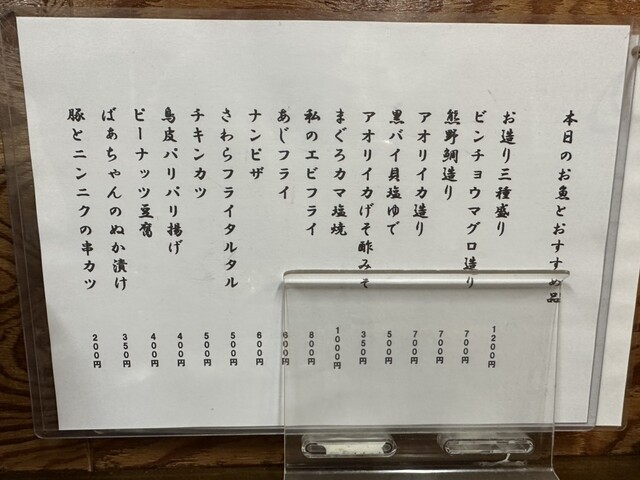 本日のお魚とおすすめ品
お造り三種盛り 1200円
ビンチョウマグロ造り 700円
熊野鯛造り 700円
アオリイカ造り 700円
黒バイ貝塩ゆで 500円
アオリイカげそ酢みそ 350円
まぐろカマ塩焼 1000円
私のエビフライ 800円
あじフライ 600円
ナンピザ 600円
さわらフライタルタル 500円
チキンカツ 500円
鳥皮パリパリ揚げ 400円
ピーナッツ豆腐 400円
ばあちゃんのぬか漬け 350円
豚とニンニクの串カツ 200円